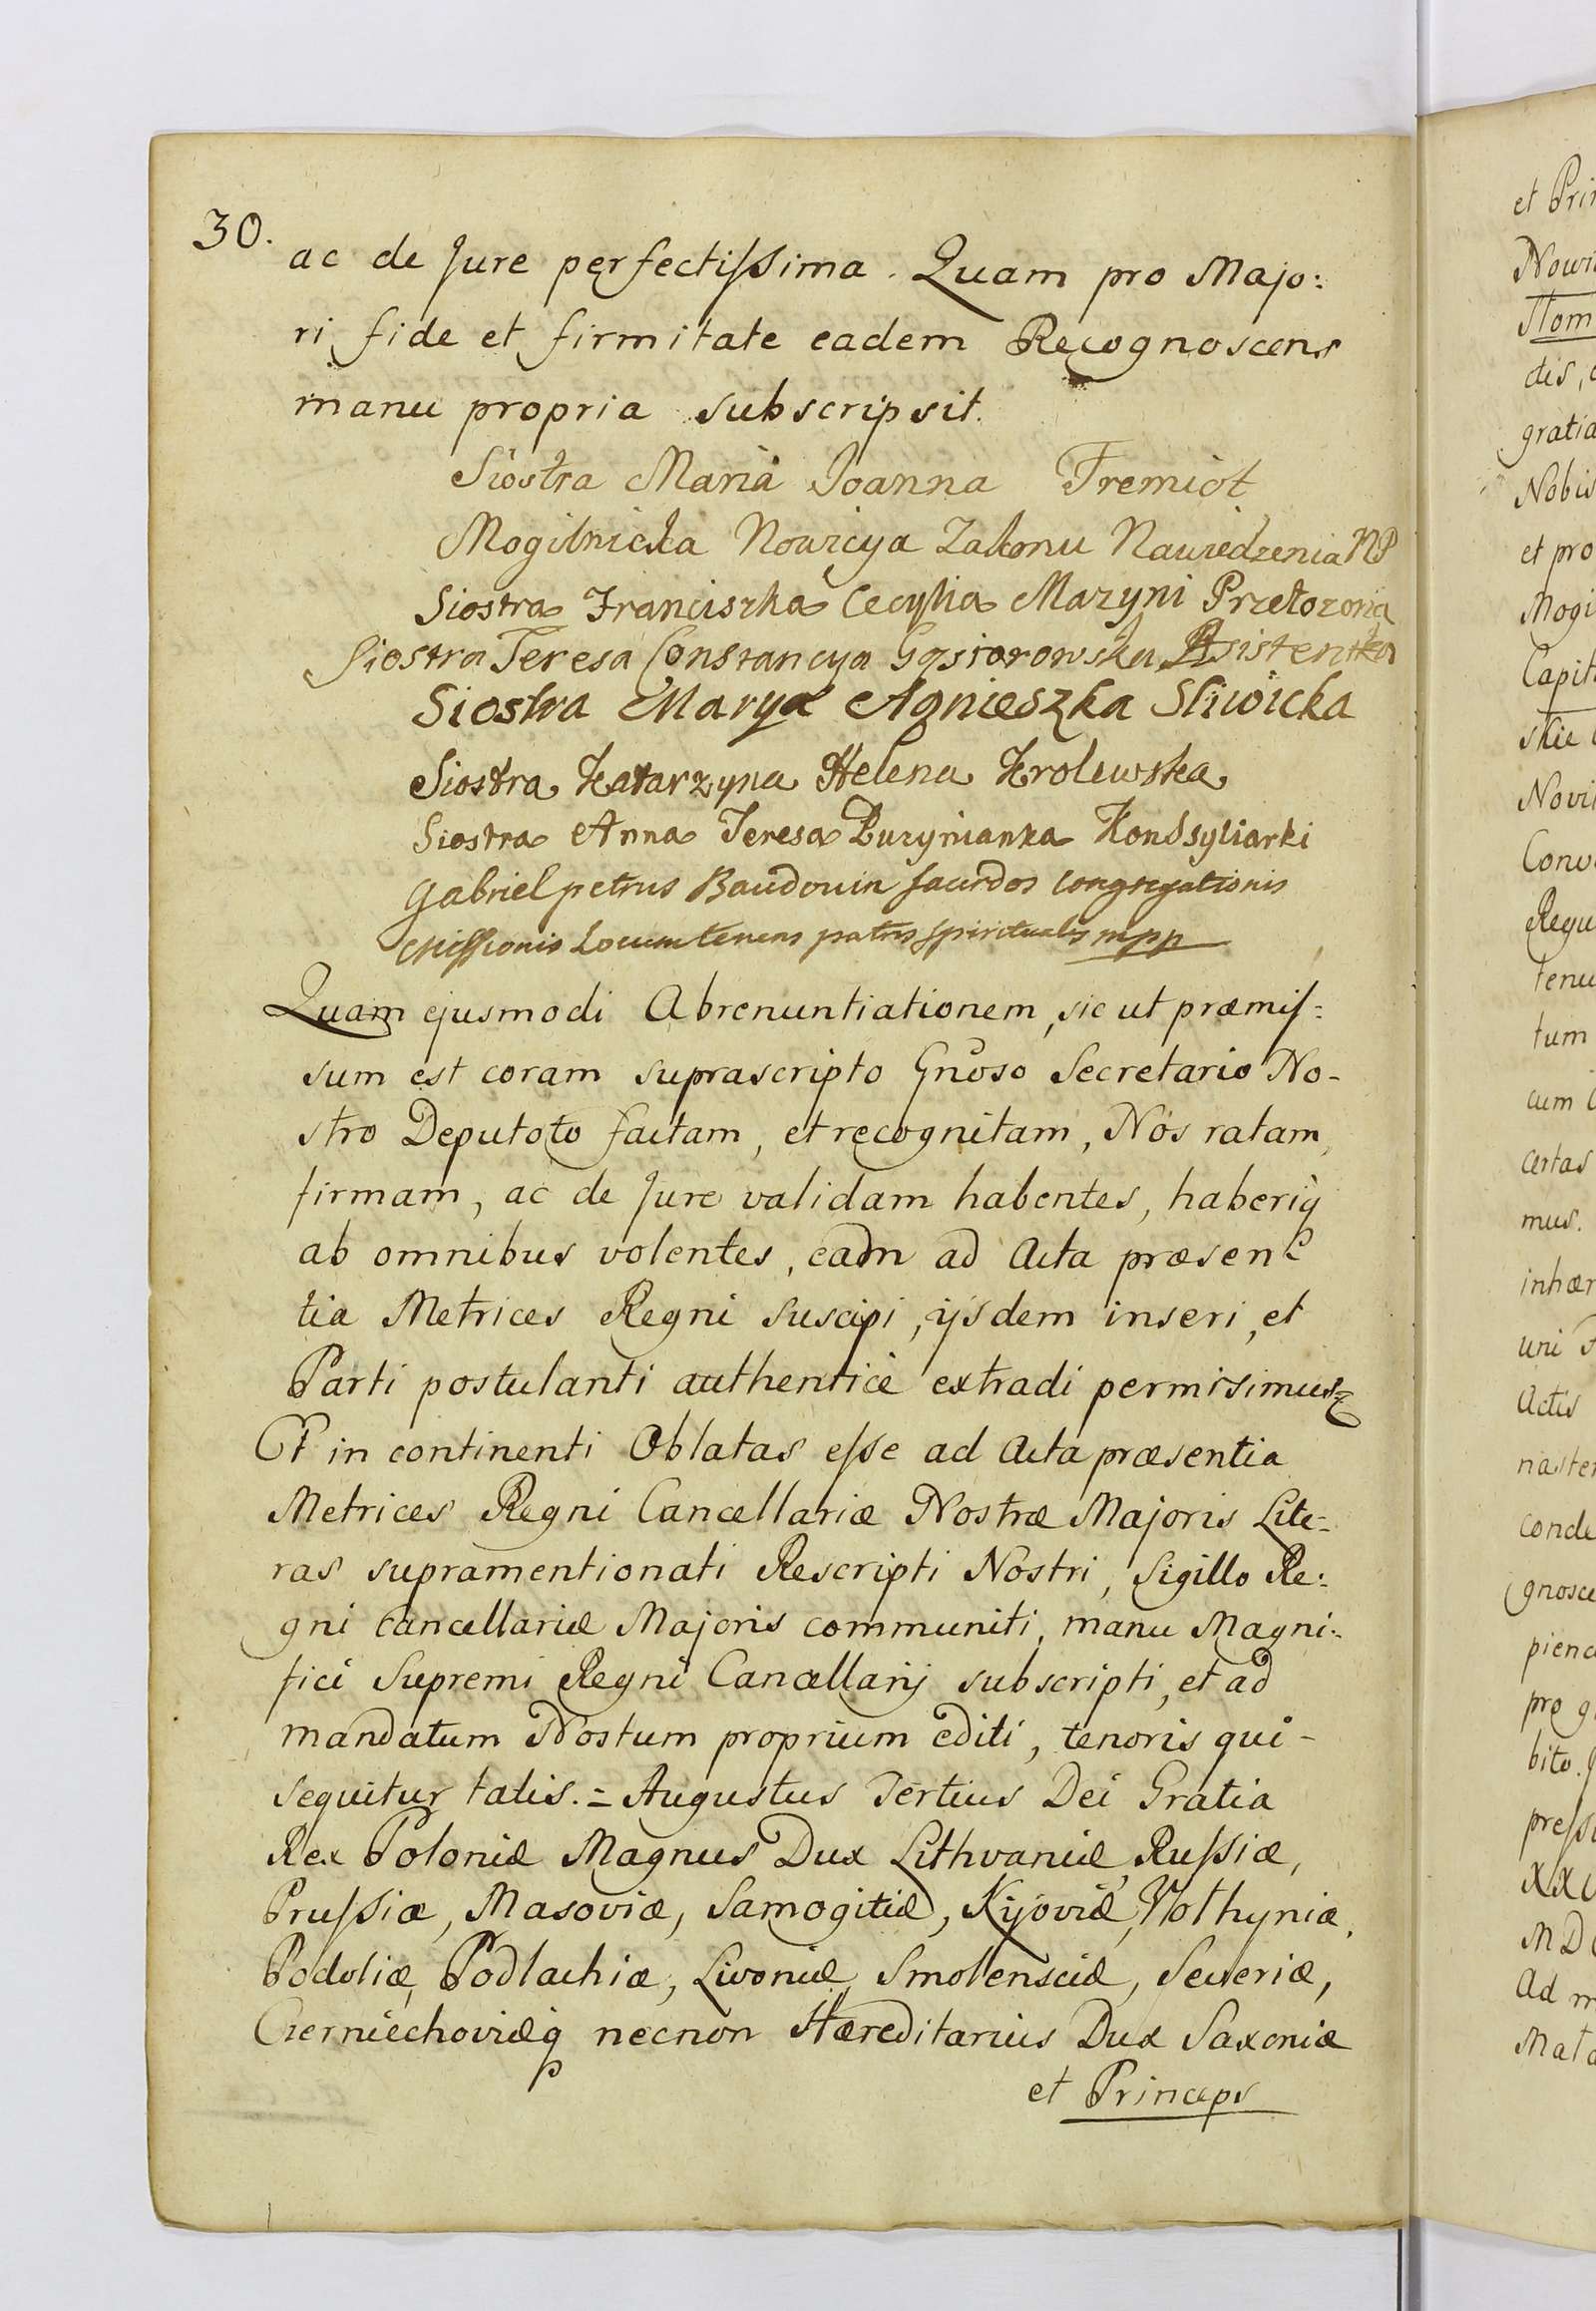 30.
ac de Jure perfectissima. Quam pro Majo:
ri fide et firmitate eadem Recognoscens
manu propria subscripsit.
Siostra Maria Joanna Fremiot
Mogilnicka Nowicya Zakonu Nawiedzenia NP
Siostra Franciszka Cecylia Mazyni Przełozona
Siostra Teresa Constancya Gąsiorowska Asistentka
Siostra Marya Agnieszka Sliwicka
Siostra Katarzyna Helena Krolewska
Siostra Anna Teresa Buzynianka Konssyliarki
Gabriel petrus Baudouin sacerdos congregationis
Missionis Locumtenens patris spiritualis mpp
Quam ejusmodi Abrenuntiationem, sic ut præmis:
sum est coram suprascripto Gnoso Secretario No-
stro Deputoto factam, et recognitam, Nos ratam,
firmam, ac de Jure validam habentes, haberiq
ab omnibus volentes, eadm ad Acta præsen
tia Metrices Regni suscipi, ijsdem inseri, et
Parti postulanti authentice extradi permisimus
Et in continenti Oblatas esse ad Acta præsentia
Metrices Regni Cancellariæ Nostræ Majoris Lite-
ras supramentionati Rescripti Nostri, Sigillo Re:
gni Cancellariæ Majoris communiti, manu Magni:
fici Supremi Regni Cancellarij subscripti, et ad
mandatum Nostum proprium editi, tenoris qui-
sequitur talis. = Augustus Tertius Dei Gratia
Rex Poloniæ Magnus Dux Lithvaniæ, Russiæ,
Prussiæ, Masoviæ, Samogitiæ, Kijoviæ, Volhyniæ,
Podoliæ, Podlachiæ, Livoniæ, Smolensciæ, Severiæ,
Czerniechoviæq necnon Hæreditarius Dux Saxoniæ
et Princeps
et Pri
Nowi
dis,
gratia
Nobis
et pro
Mogi
Capit
skie
Novi
Conv
Regu
tenu
tum
cum
certas
mus.
inhær
uni
Actis
naster
conde
gnosce
piend
pro g
bito.
press
XX
MD
Ad m
Mata